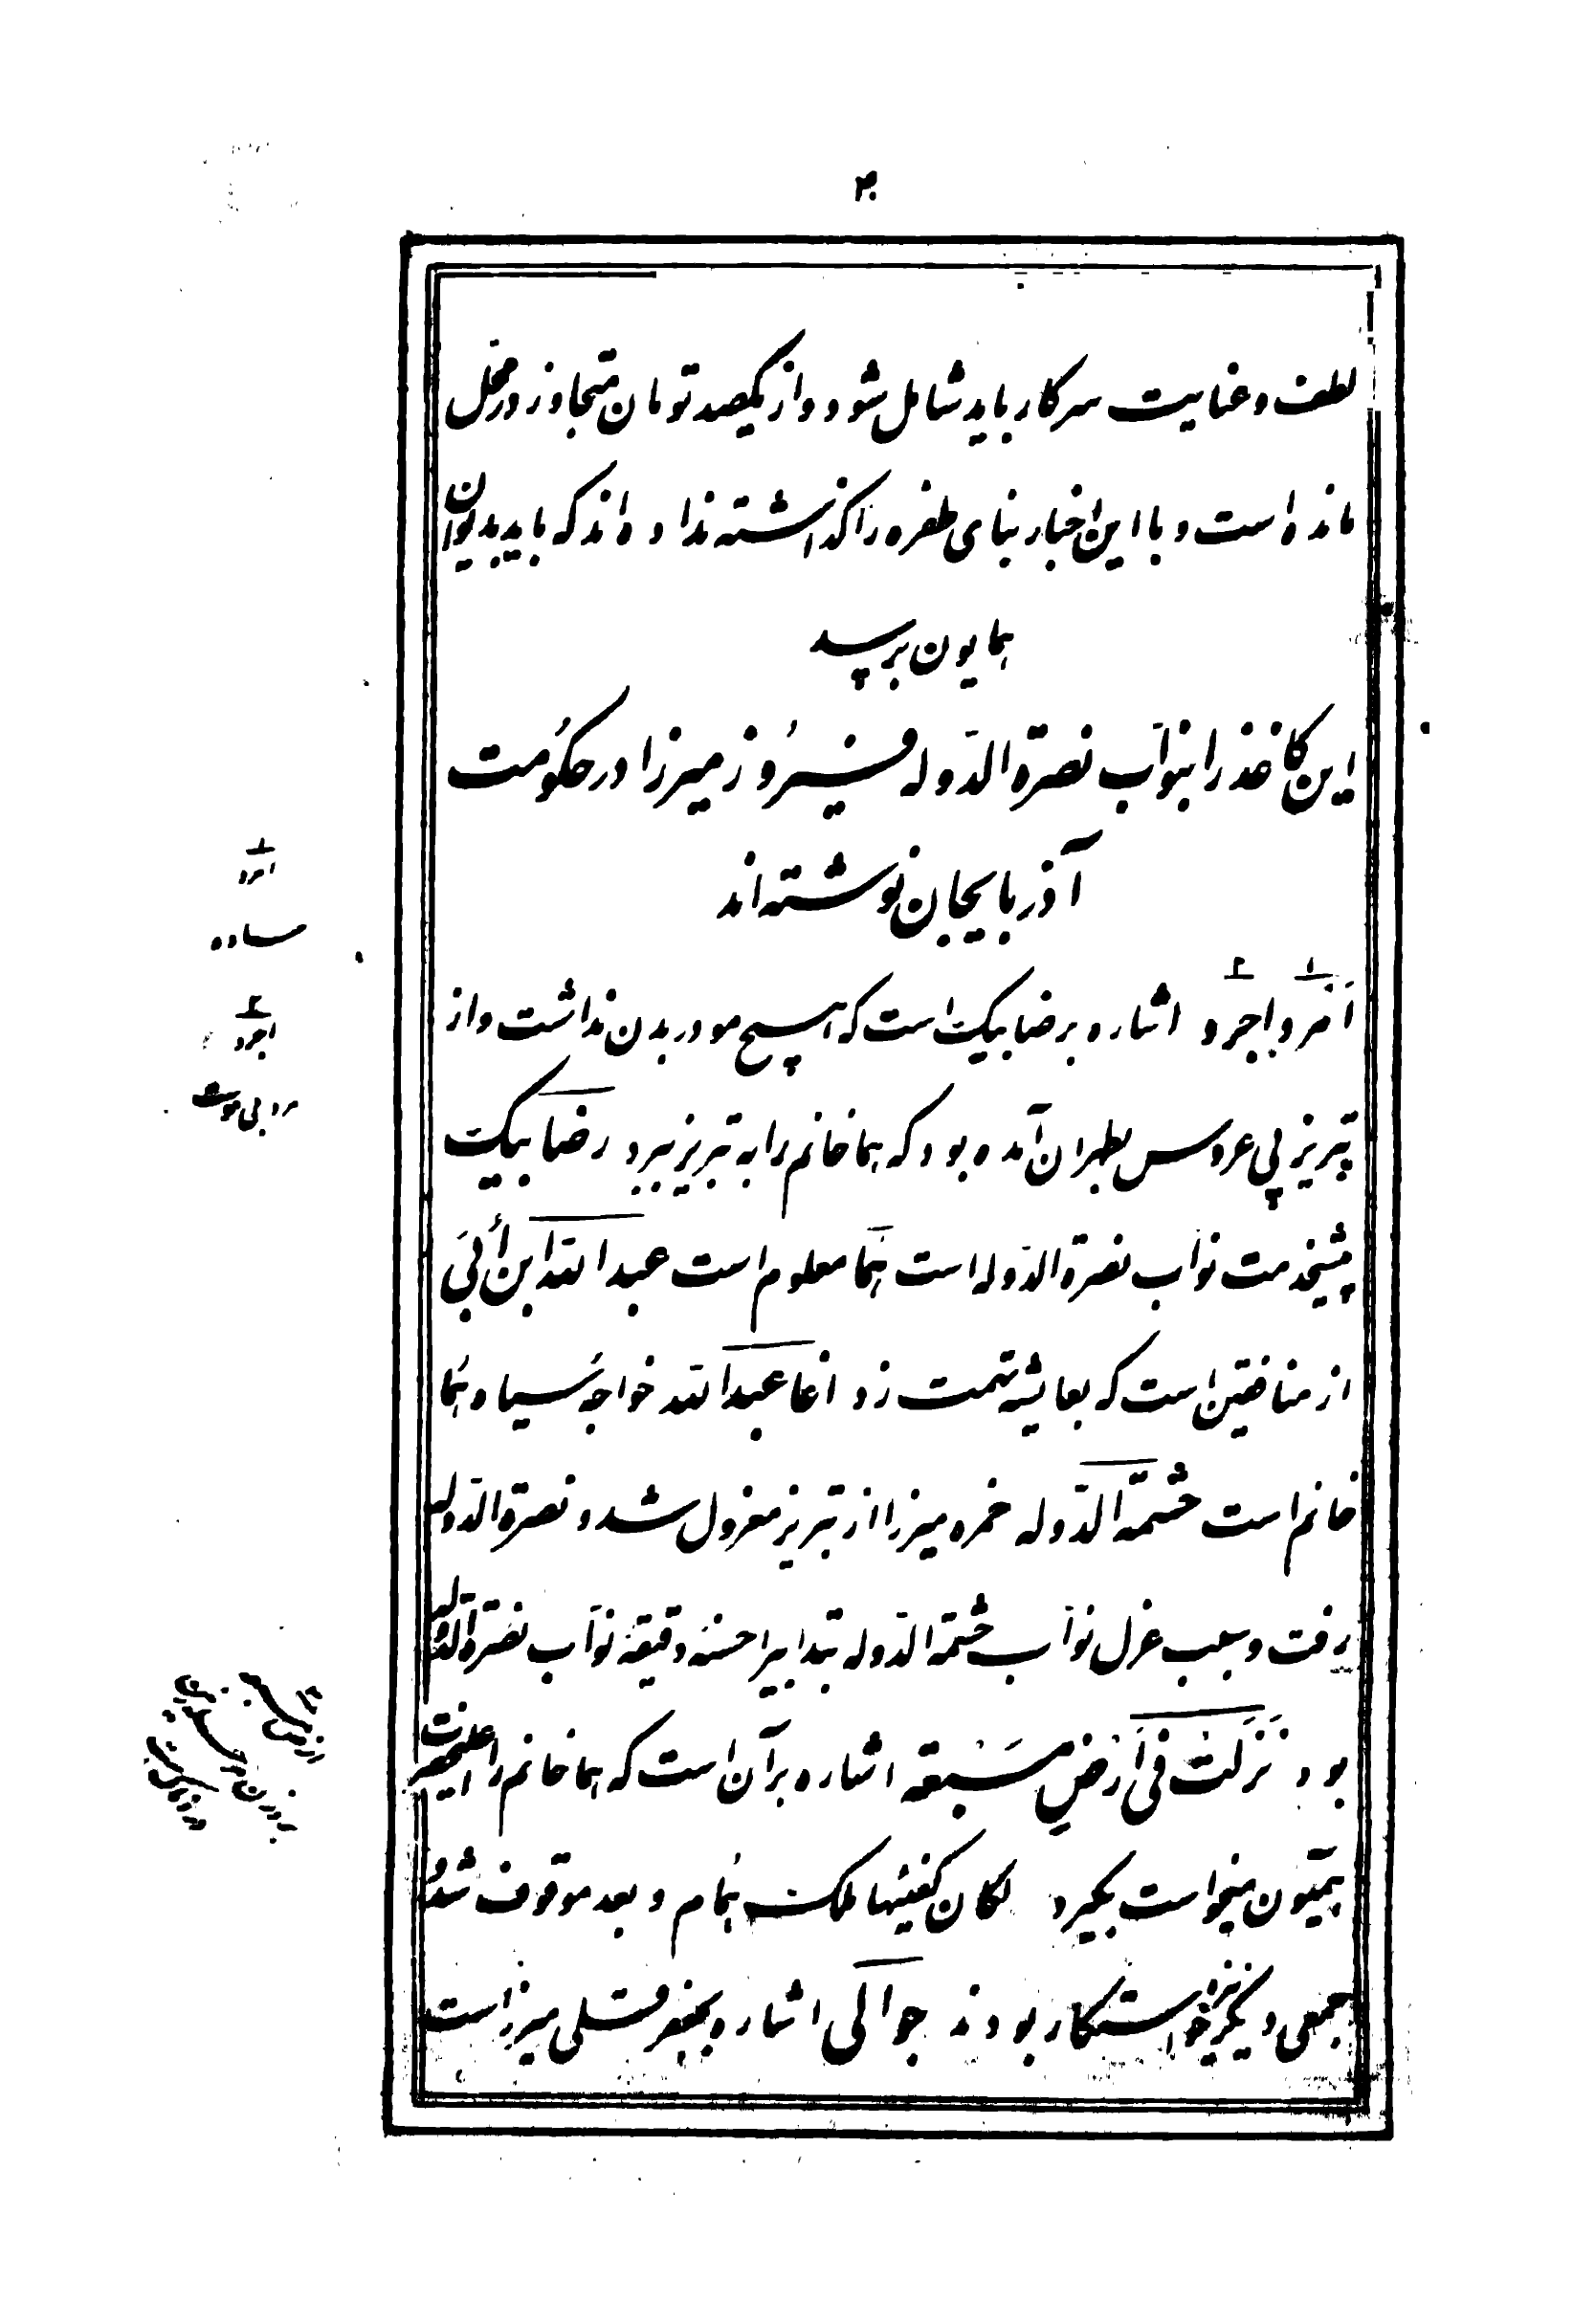 ۲۰
لطف و عنایت سرکار باید شامل شود و از یکصد تومان متجاوز در محل
مانده است و با این اخبار بنای طفره را گذاشته نداده اند که باید بدیوان
همایون برسد
این کاغذ را بنواب نصرة الدوله فیروز میرزا در حکومت
آذربایجان نوشته اند
اَمْرد و اجرد اشاره برضا بیک است که هیچ مو در بدن نداشت و از
تبریز پی عروس بطهران آمده بود که هما خانم را به تبریز ببرد رضا بیک
پیشخدمت نوّاب نصرة الدوله است هما معلوم است عبد الله ابن أُبیَ
از منافقین است که بعایشه تهمت زد اغا عبد الله خواجه سیاه هما
خانم است حشمة الدّوله حمزه میرزا از تبریز معزول شد و نصرة الدوله
رفت و سبب عزل نوّاب حشمة الدوله تدابیر حسنه دقیقهٔ نوّاب نصرة الدوله
بود نَزَلَت فی اَرْضِ مَسْبَعه اشاره بر آن است که هما خانم را اعلیحضرت
همیون میخواست بگیرد لکان کفیئها ملک همام و بعد موقوف شد و
جمعی دیگر نیز خواستکار بودند جوالی اشاره بجعفر قلی میرزاست
۱
امرد
ساده
۲
اجرد
مرد بی موست